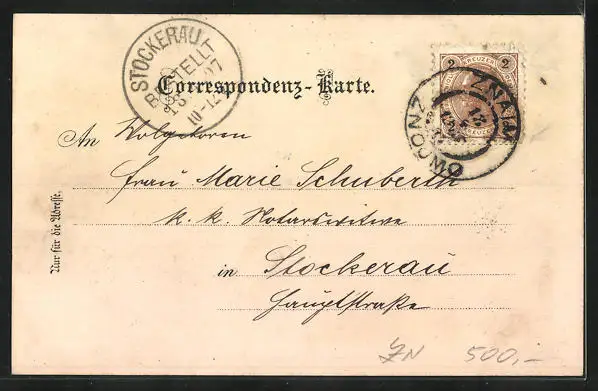 STOCKERAU
BESTELLT
Correspondenz-Karte.
2 KREUZER 2
ZNAIM
ZNOJMO
An Wolgeboren
Frau Marie Schuberth
k. k. Notarswitwe
in Stockerau
Hauptstraße
Nur für die Adresse.
ZN 500,-